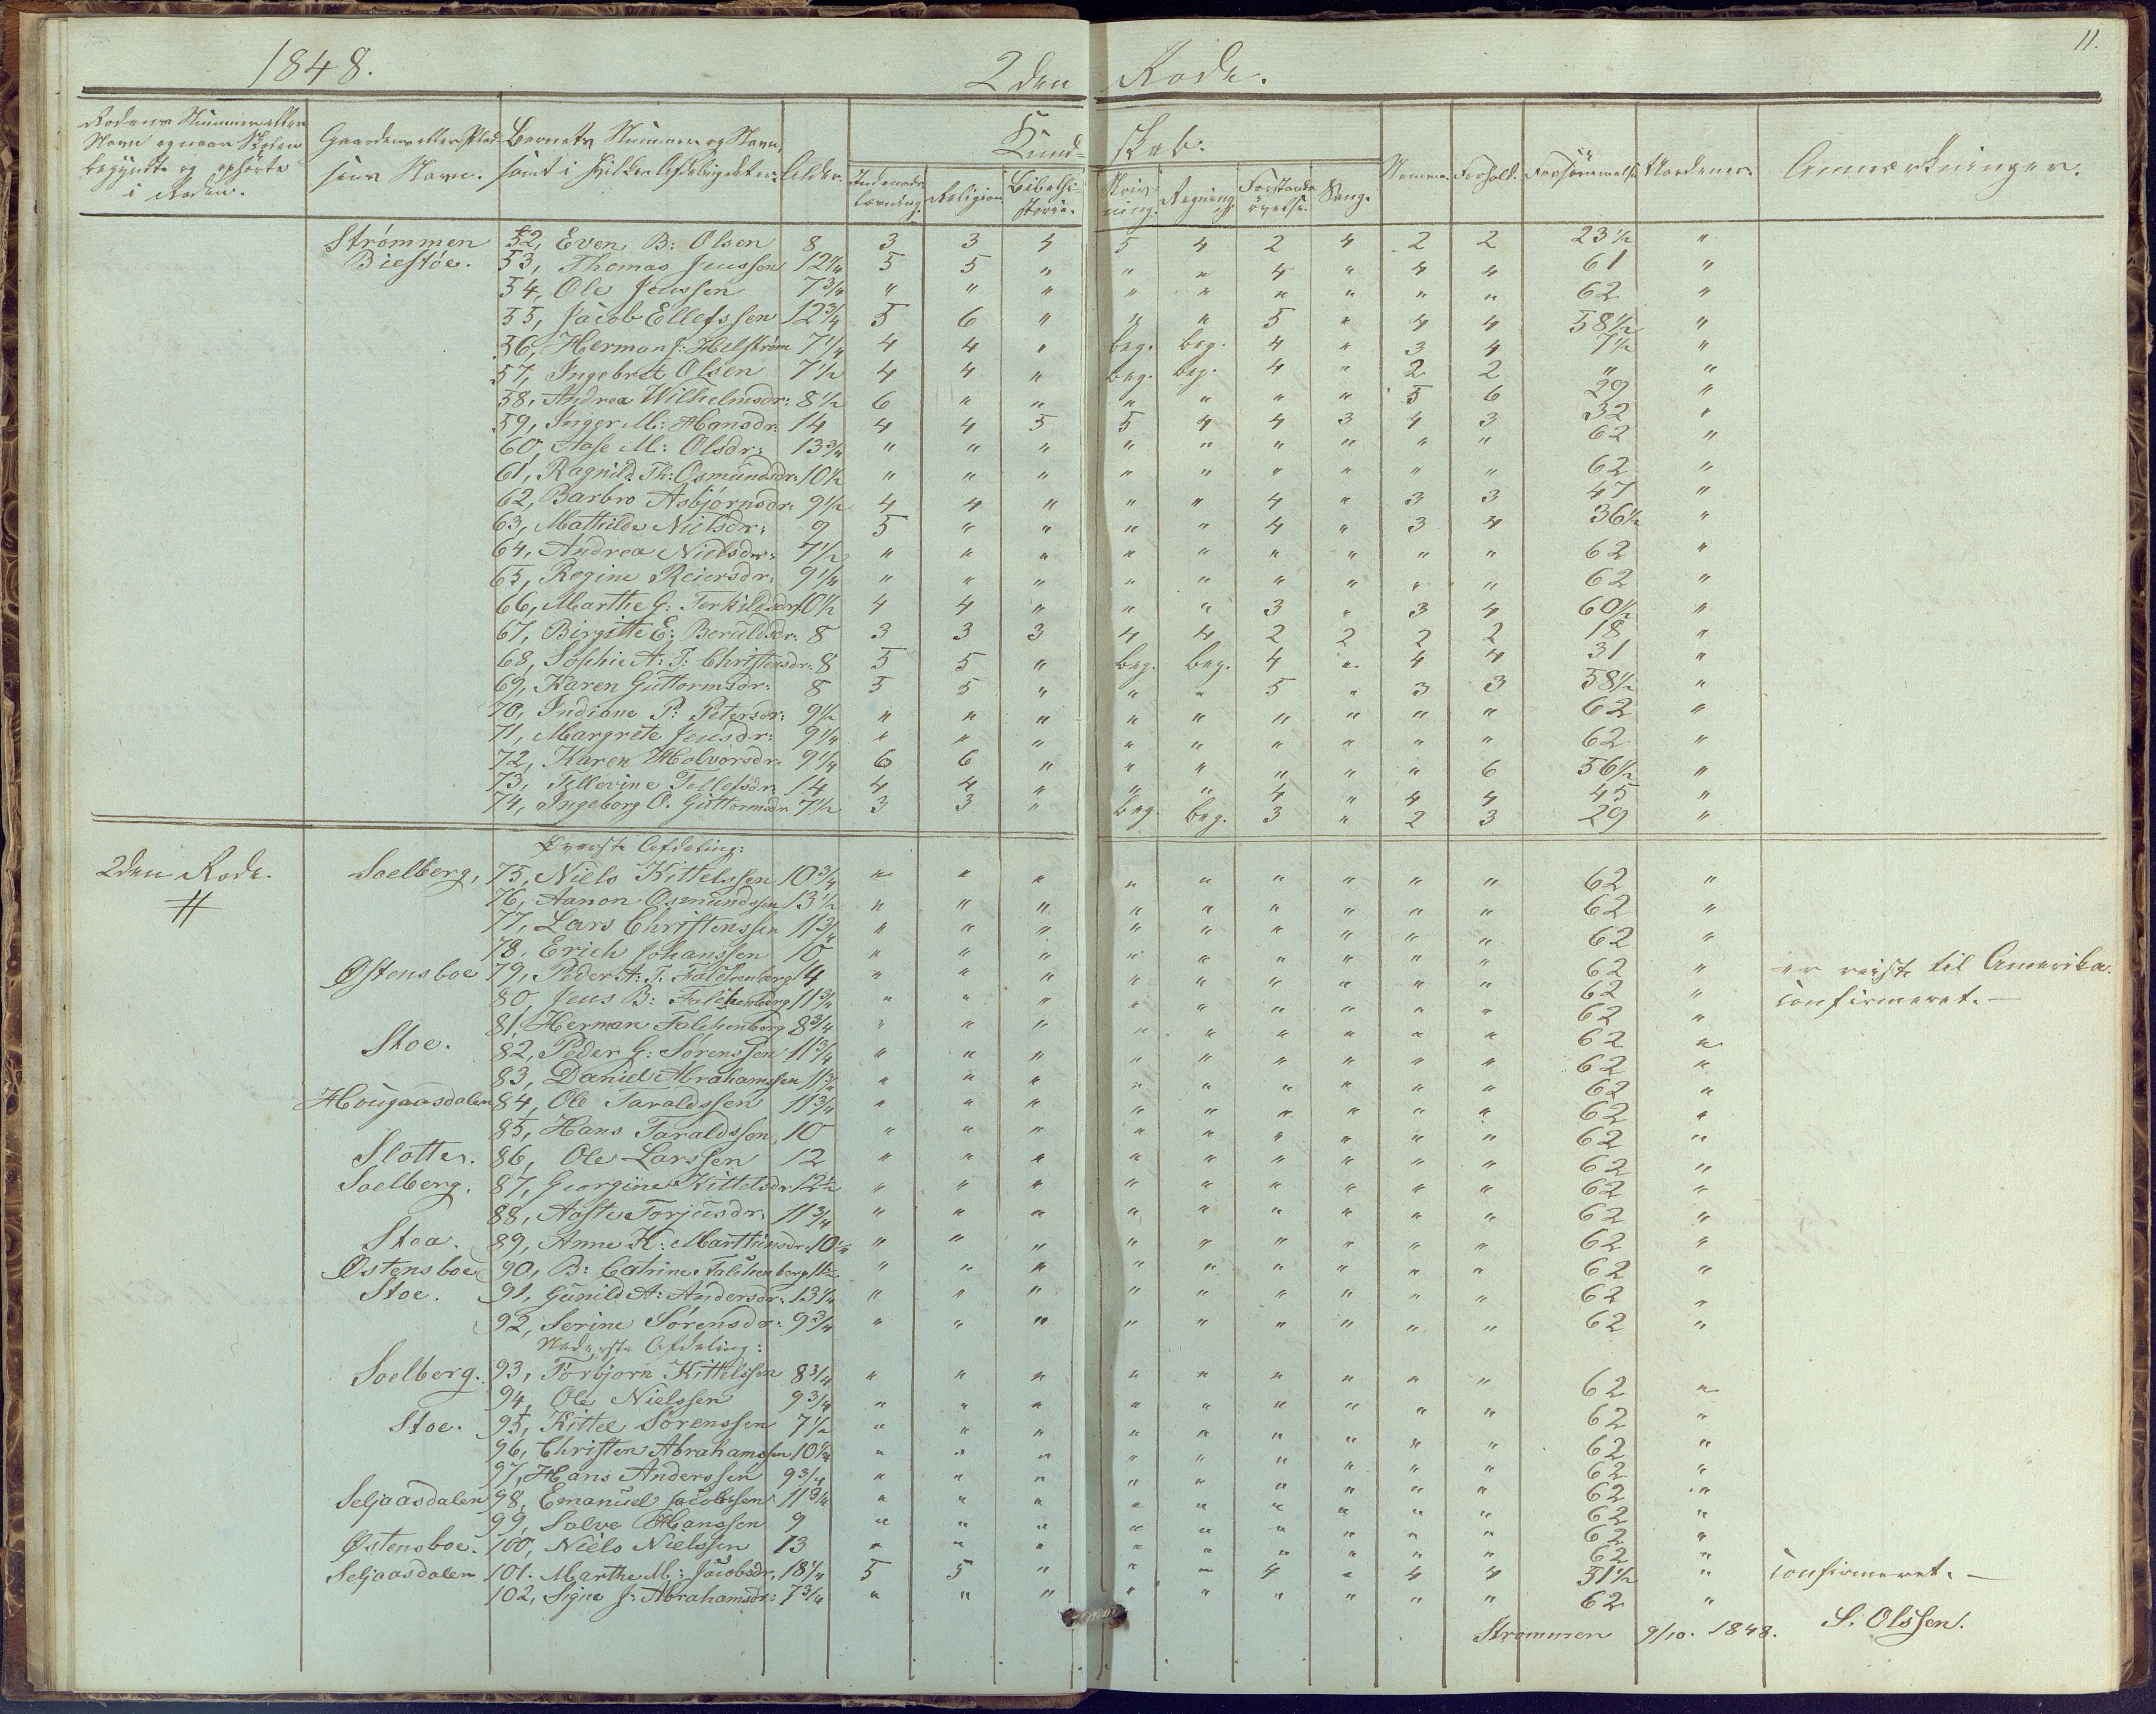 11.
1848. 2den Rode.
Rodens Nummer eller Navn og naar Skolen begyndte og ophörte i Roden.
Gaardens eller Pladsens Navn.
Barnets Nummer og Navn, samt i hvilken Afdeling det er.
Alder.
Kundskab.
Indenadslæsning. Religion. Bibelhistorie. Skrivning. Regning. Forstandsövelse. Sang.
Nemme. Forhold. Forsömmelse. Anmærkninger.
Strømmen 52, Even B: Olsen 8 3 3 4 5 4 2 4 2 2 23½ "
Biestöe. 53, Thomas Jenssen 12¼ 5 5 " " " 4 " 4 4 61 "
54, Ole Jenssen 7¾ " " " " " " " " " 62 "
55, Jacob Ellefssen 12¾ 5 6 " " " 5 " 4 4 58½ "
56, Herman J: Helström 7¼ 4 4 " beg. beg. 4 " 3 4 7½ "
57, Ingebret Olsen 7½ 4 4 " beg. beg. 4 " 2 2 " "
58, Andrea Wilhelmsdr: 8½ 6 " " " " " " 5 6 29 "
59, Inger M: Hansdr: 14 4 4 5 5 4 4 3 4 3 32 "
60, Aase M: Olsdr: 13¾ " " " " " " " " " 62 "
61, Ragnild Th: Osmundsdr: 10½ " " " " " " " " " 62 "
62, Barbro Asbjörnsdr: 9½ 4 4 " " " 4 " 3 3 47 "
63, Mathilde Nielsdr: 9 5 " " " " 4 " 3 4 36½ "
64, Andrea Nielsdr: 7½ " " " " " " " " " 62 "
65, Regine Reiersdr: 9¼ " " " " " " " " " 62 "
66, Marthe G: Terkildsdr: 10½ 4 4 " " " 3 " 3 4 60½ "
67, Birgitte E: Beruldsdr: 8 3 3 3 4 4 2 2 2 2 18 "
68, Sophie A: T: Christensdr: 8 5 5 " beg. beg. 4 " 4 4 31 "
69, Karen Guttormsdr: 8 5 5 " " " 5 " 3 3 58½ "
70, Indiane P: Petersdr: 9½ " " " " " " " " " 62 "
71, Margrete Jensdr: 9¼ " " " " " " " " " 62 "
72, Karen Holvorsdr: 9¼ 6 6 " " " " " " 6 56½ "
73, Tellevine Tellefsdr: 14 4 4 " " " 4 " 4 4 45 "
74, Ingeborg O. Guttormsdr 7½ 3 3 " beg. beg. 3 " 2 3 29 "
Överste Afdeling:
2den Rode. Soelberg, 75, Niels Kittelssen 10¾ " " " " " " " " " 62 "
76, Aanon Osmundssen 13½ " " " " " " " " " 62 "
77, Lars Christenssen 11¾ " " " " " " " " " 62 "
78, Erich Johanssen 10 " " " " " " " " " 62 " er reist til Amerika.
Østensboe 79, Peder A: T: Falchenberg 14 " " " " " " " " " 62 " Confirmeret. —
80, Jens B: Falchenberg 11¾ " " " " " " " " " 62 "
81, Herman Falchenberg 8¾ " " " " " " " " " 62 "
Stoe. 82, Peder G: Sörenssen 11¾ " " " " " " " " " 62 "
83, Daniel Abrahamssen 11¾ " " " " " " " " " 62 "
Hougaasdalen 84, Ole Taraldssen 11¾ " " " " " " " " " 62 "
85, Hans Taraldssen 10 " " " " " " " " " 62 "
Slotter. 86, Ole Larssen 12 " " " " " " " " " 62 "
Soelberg. 87, Georgine Kittelsdr 12½ " " " " " " " " " 62 "
88, Aaste Torjusdr: 11¾ " " " " " " " " " 62 "
Stoa. 89, Anne K: Marthinsdr: 10¼ " " " " " " " " " 62 "
Østensboe 90, B: Catrine Falchenberg 11½ " " " " " " " " " 62 "
Stoe. 91, Gunild A: Andersdr: 13¼ " " " " " " " " " 62 "
92, Serine Sörensdr: 9¾ " " " " " " " " " 62 "
Nederste Afdeling:
Soelberg. 93, Torbjorn Kittelssen 8¾ " " " " " " " " " 62 "
94, Ole Nielssen 9¾ " " " " " " " " " 62 "
Stoe. 95, Kittel Sörenssen 7½ " " " " " " " " " 62 "
96, Christen Abrahamssen 10¼ " " " " " " " " " 62 "
97, Hans Anderssen 9¾ " " " " " " " " " 62 "
Seljaasdalen 98, Emanuel Jacobssen 11¾ " " " " " " " " " 62 "
99, Salve Hanssen 9 " " " " " " " " " 62 "
Østensboe. 100, Niels Nielssen 13 " " " " " " " " " 62 "
Seljaasdalen 101. Marthe M: Jacobsdr. 18¼ 5 5 " " " 4 " 4 4 51½ " Confirmeret. —
102, Signe J: Abrahamsdr: 7¾ " " " " " " " " " 62 "
Strommen 9/10. 1848. S. Olssen.